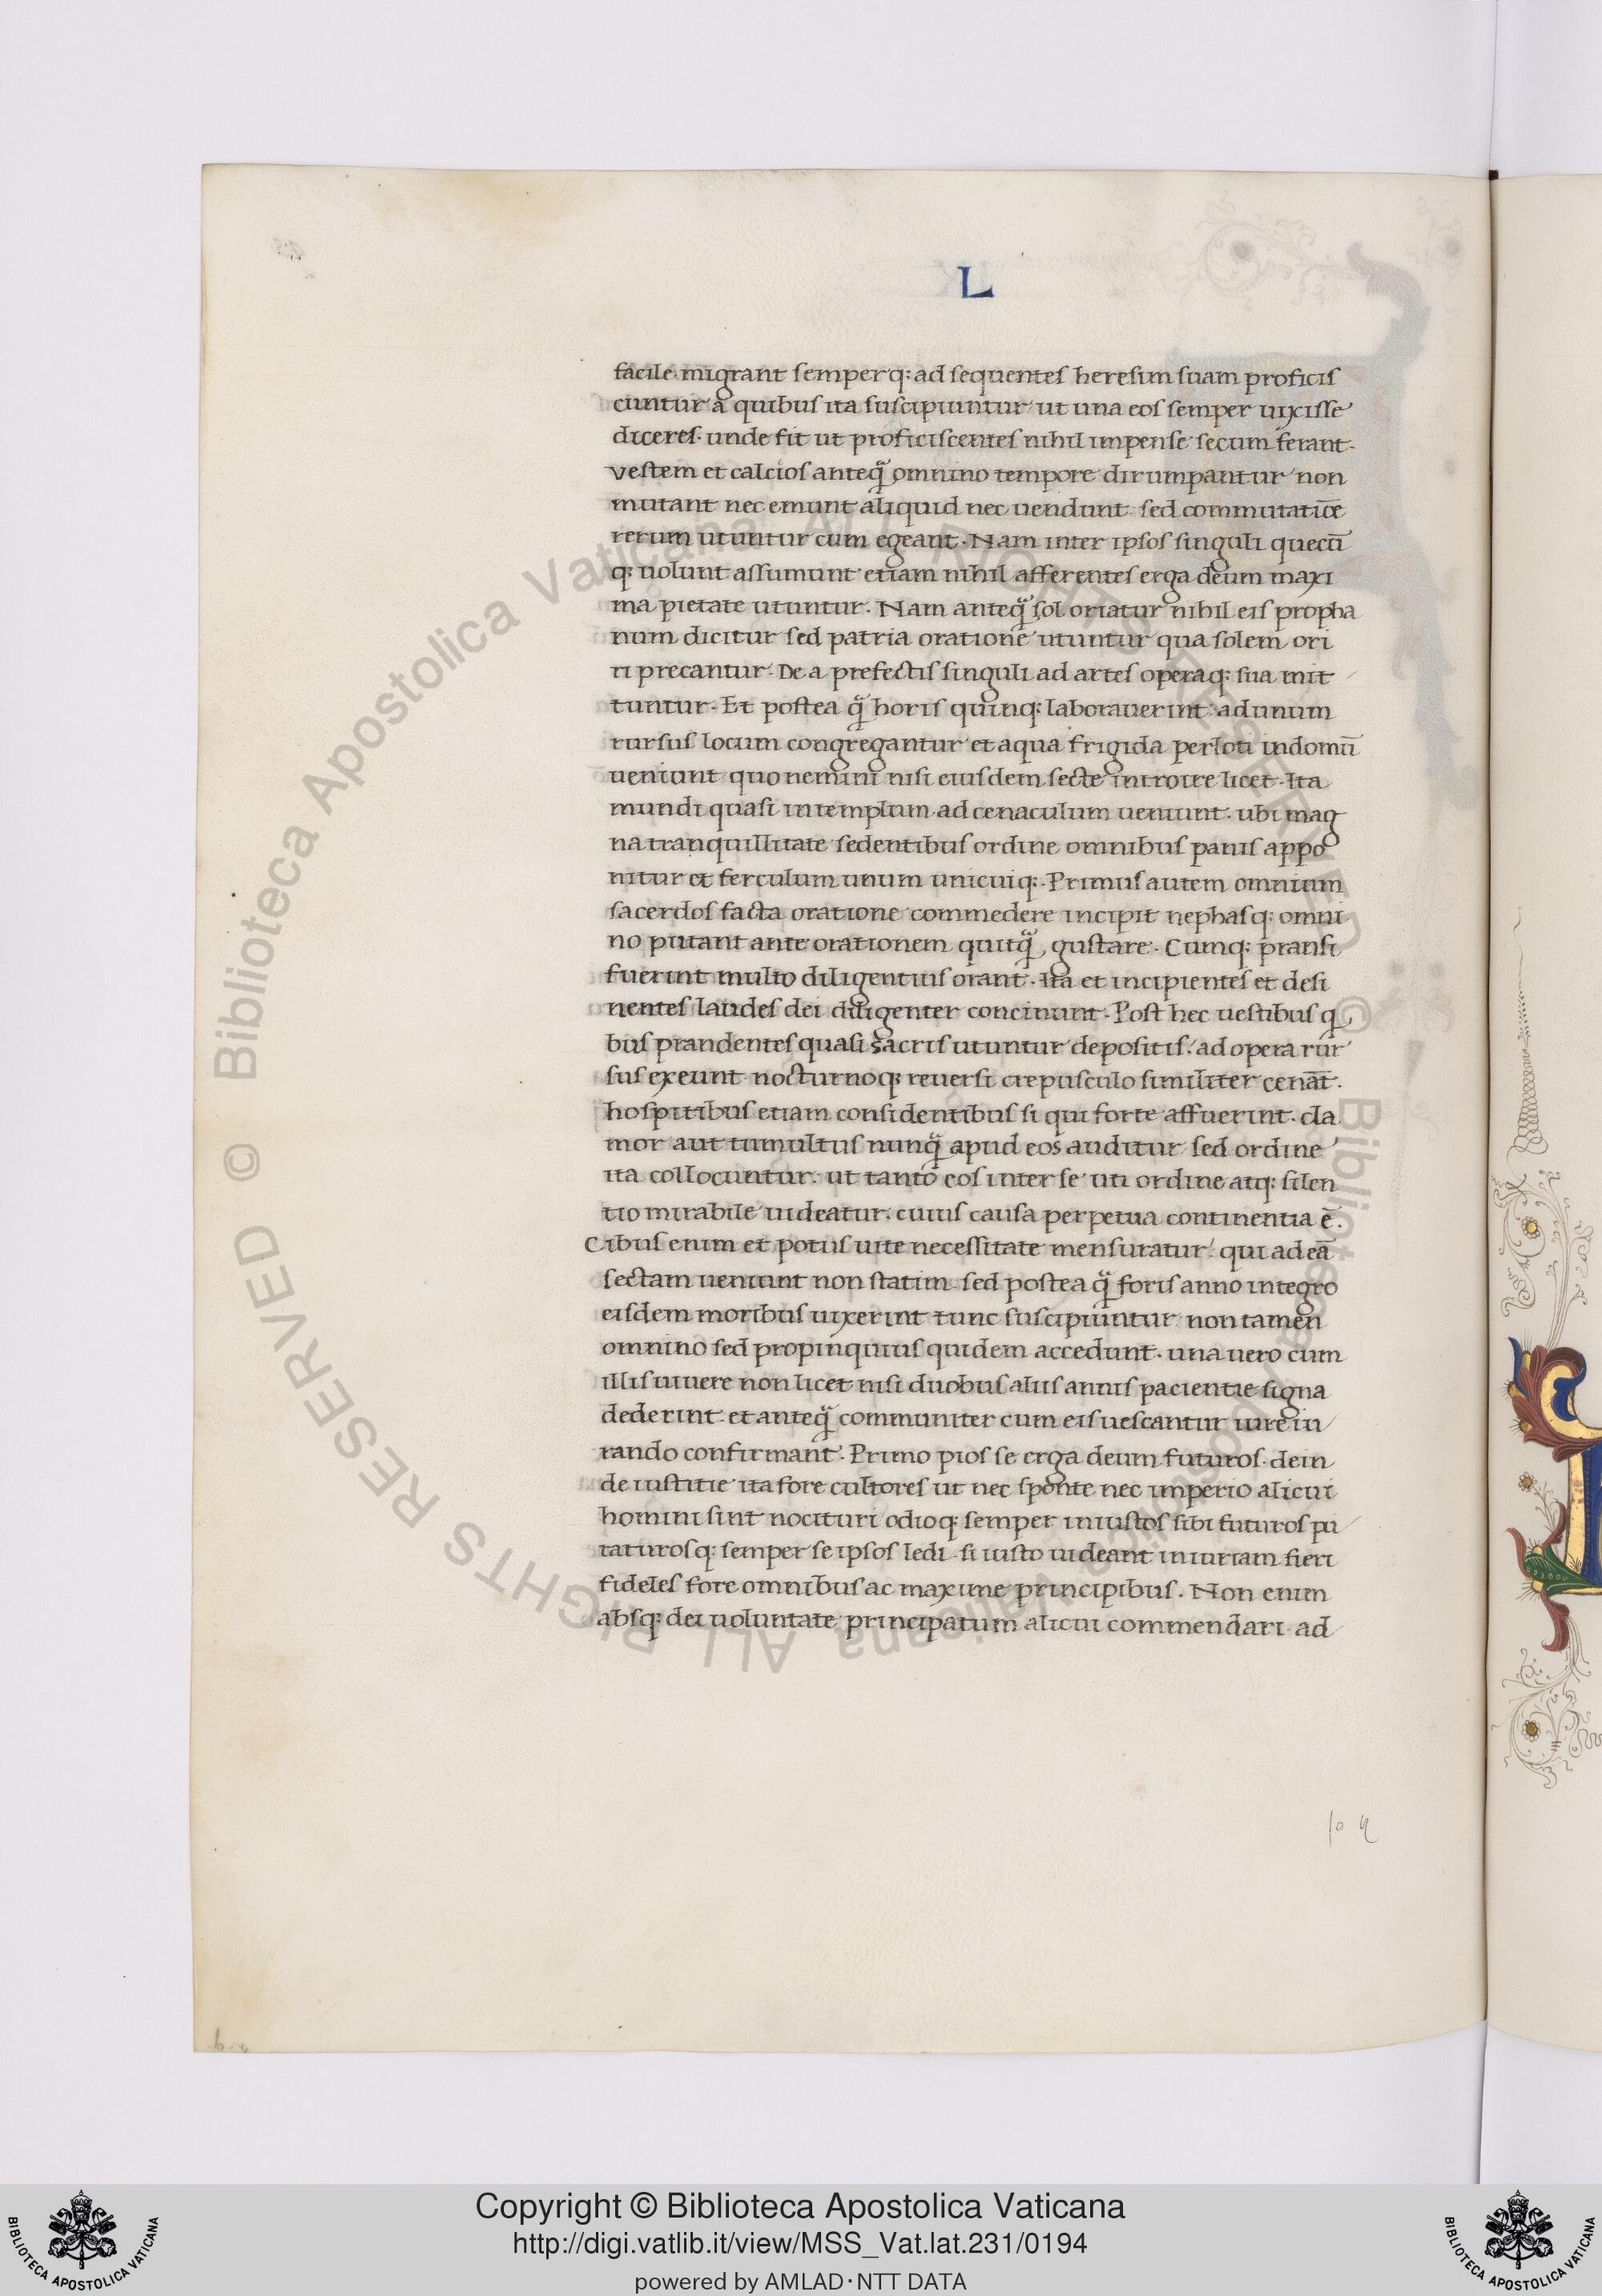 L
facile migrant semperq: ad sequentes heresim suam proficis
cuntur a quibus ita suscipiuntur ut una eos semper uixisse
diceres. unde fit ut proficiscentes nihil impense secum ferant.
vestem et calcios anteq̃ omnino tempore dirumpantur non
mutant nec emunt aliquid nec uendunt sed commutatiōe
rerum utuntur cum egeant. Nam inter ipsos singuli quecū
q: uolunt assumunt etiam nihil afferentes erga deum maxi
ma pietate utuntur. Nam anteq̃ sol oriatur nihil eis propha
num dicitur sed patria oratione utuntur qua solem ori
ri precantur. De a prefectis singuli ad artes operaq: sua mit
tuntur. Et postea q̃ horis quinq: laborauerint ad unum
rursus locum congregantur et aqua frigida perloti in domū
ueniunt quo nemini nisi eiusdem secte introire licet. Ita
mundi quasi in templum ad cenaculum ueniunt. ubi mag
na tranquillitate sedentibus ordine omnibus panis appo
nitur et ferculum unum unicuiq:. Primus autem omnium
sacerdos facta oratione commedere incipit nephasq: omni
no putant ante orationem quitq̃ gustare. Cumq: pransi
fuerint multo diligentius orant. Ita et incipientes et desi
nentes laudes dei diligenter concinunt. Post hec uestibus q
bus prandentes quasi sacris utuntur depositis. ad opera rur
sus exeunt nocturnoq: reuersi crepusculo similiter cenāt.
hospitibus etiam considentibus si qui forte affuerint. cla
mor aut tumultus nunq̃ apud eos auditur sed ordine
ita collocuntur. ut tanto eos inter se uti ordine atq: silen
tio mirabile uideatur. cuius causa perpetua continentia ē.
Cibus enim et potus uite necessitate mensuratur. qui ad eā
sectam ueniunt non statim sed postea q̃ foris anno integro
eisdem moribus uixerint tunc suscipiuntur non tamen
omnino sed propinquius quidem accedunt. una uero cum
illis uiuere non licet nisi duobus aliis annis pacientie signa
dederint et anteq̃ communiter cum eis uescantur iureiu
rando confirmant. Primo pios se erga deum futuros. dein
de iustitie ita fore cultores ut nec sponte nec imperio alicui
homini sint nocituri odioq: semper iniustos sibi futuros pu
taturosq: semper se ipsos ledi. si iusto uideant iniuriam fieri
fideles fore omnibus ac maxime principibus. Non enim
absq: dei uoluntate principatum alicui commendari ad
© Biblioteca Apostolica Vaticana ALL RIGHTS RESERVED
© Biblioteca Apostolica Vaticana ALL RIGHTS RESERVED
Copyright © Biblioteca Apostolica Vaticana
http://digi.vatlib.it/view/MSS_Vat.lat.231/0194
powered by AMLAD·NTT DATA
BIBLIOTECA APOSTOLICA VATICANA
BIBLIOTECA APOSTOLICA VATICANA